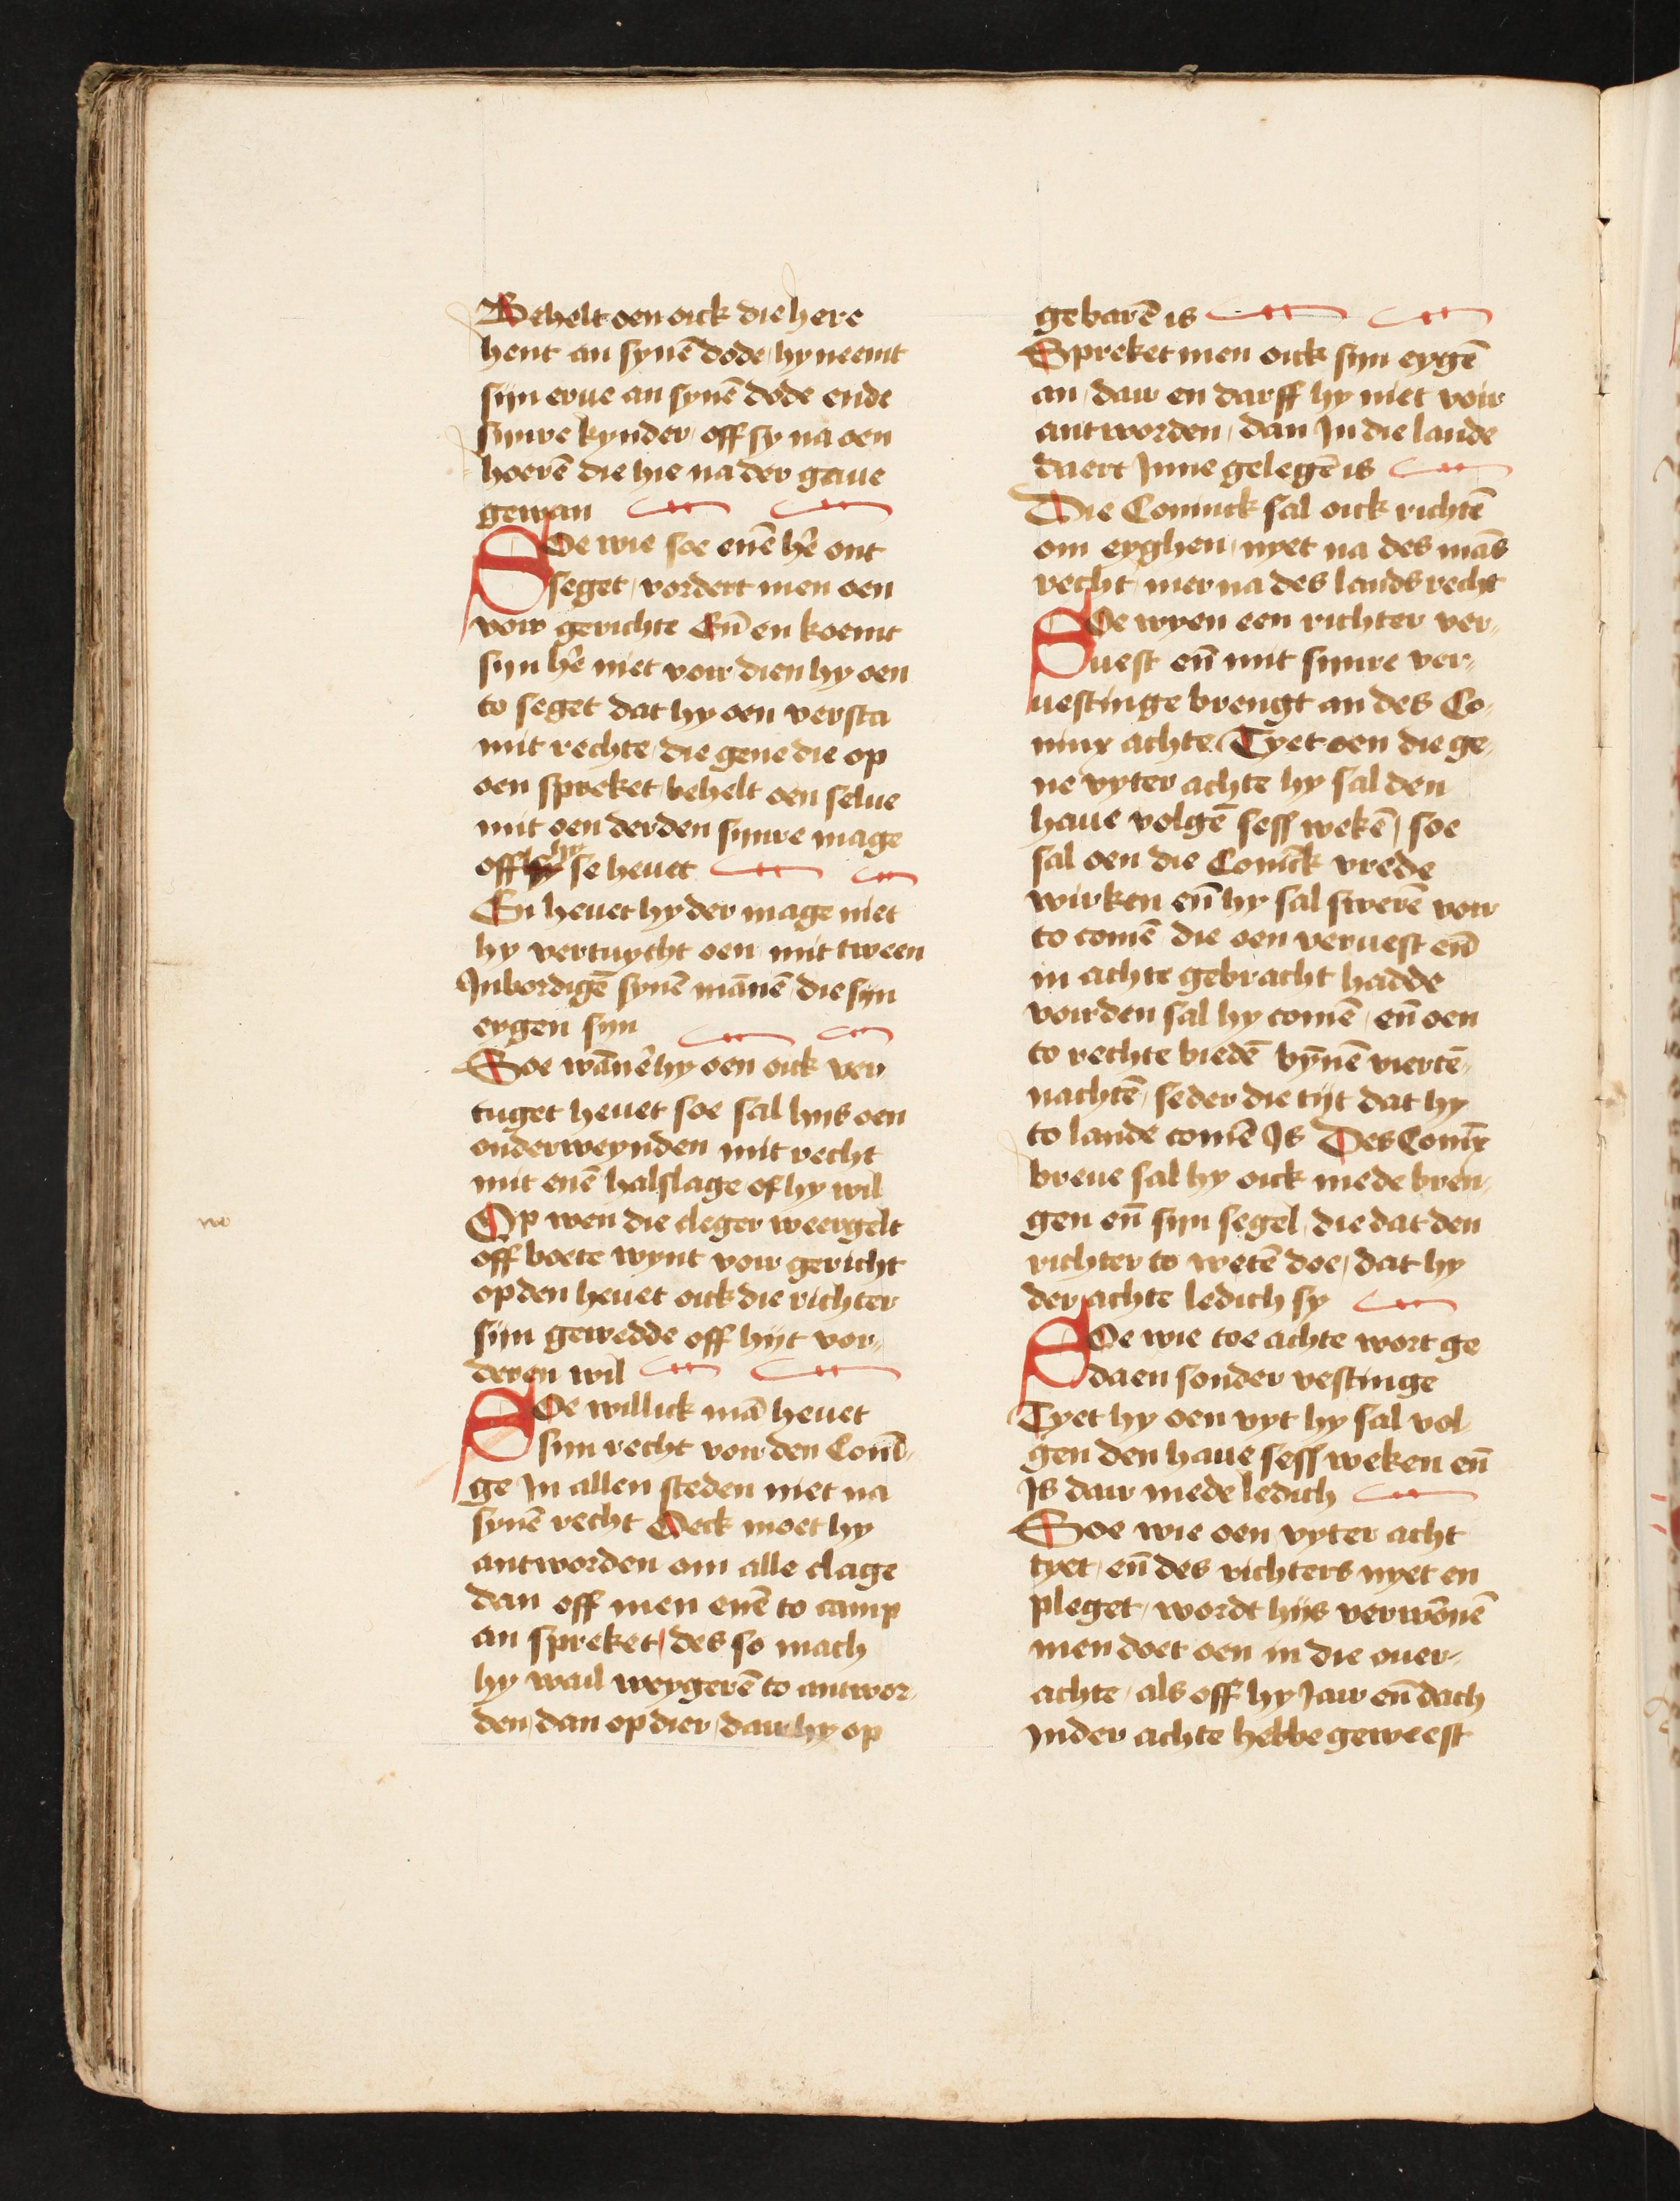 Behelt oen oick die here
hent an synē dode / hy neemt
sijn erue an synē dode ende
synre kynder / off sy na oen
hoerē die hie na der gaue
gewan
SOe wie soe enē hē ont
seget / vordert men oen
voir gerichte Eñ en koemt
syn hē niet voir dien hy oen
to seget dat hy oen versta
mit rechte / die gene die op
oen spreket / behelt oen selue
mit oen derden synre mage
off hy se heuet
En heuet hy der mage niet
hy vertuycht oen mit tween
Inbordigē synē mānē / die syn
eygen syn
Soe wānē hy oen oick ver
tuget heuet soe sal hijs oen
onderweynden mit recht
mit enē halslage of hy wil
no
Op wen die cleger weergelt
off boete wynt voir gericht
op den heuet oick die richter
sijn gewedde off hijt vor„
deren wil
SOe willick mā heuet
syn recht voir den Conī„
ge In allen steden niet na
synē recht Oeck moet hy
antworden om alle clage
dan off men enē to camp
an spreket / des so mach
hy wail weygerē to antwor„
den / dan op dier / dair hy op
gebarē is
Spreket men oick sijn eygē
an / dair en darff hy niet voir
antworden / dan In die lande
daert Inne gelegē is
Die Coninck sal oick richtē
om eyghen / nyet na des mās
recht / mer na des lands recht
SOe wyen een richter ver„
uest eñ mit synre ver„
uestinge brengt an des Co„
ninx achte / Tyet oen die ge„
ne vyter achte hy sal den
haue volgē sess wekē / soe
sal oen die Conīck vrede
wirken eñ hy sal swerē voir
to comē die oen veruest eñ
in achte gebracht hadde
voirden sal hy comē / eñ oen
to rechte biedē bȳnē viertē„
nachtē / seder die tijt dat hy
to lande comē Is Des Conīx
breue sal hy oick mede bren„
gen eñ syn segel / die dat den
richter to wetē doe / dat hy
der achte ledich sy
SOe wie toe achte wort ge
daen sonder vestinge
Tyet hy oen vyt hy sal vol„
gen den haue sess weken eñ
Is dair mede ledich
Soe wie oen vyter acht
tyet / eñ des richters nyet en
pleget / wordt hijs verwōnē
men doet oen in die ouer„
achte / als off hy Jair eñ dach
Inder achte hebbe geweest